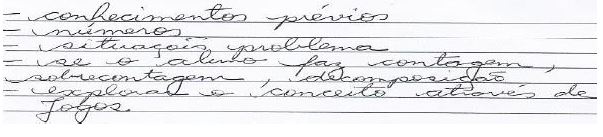 - conhecimentos prévios
- números
- situaçois problema
- se o aluno faz contagem,
sobrecontagem, decomposição
- explorar o conceito através de
jogos.